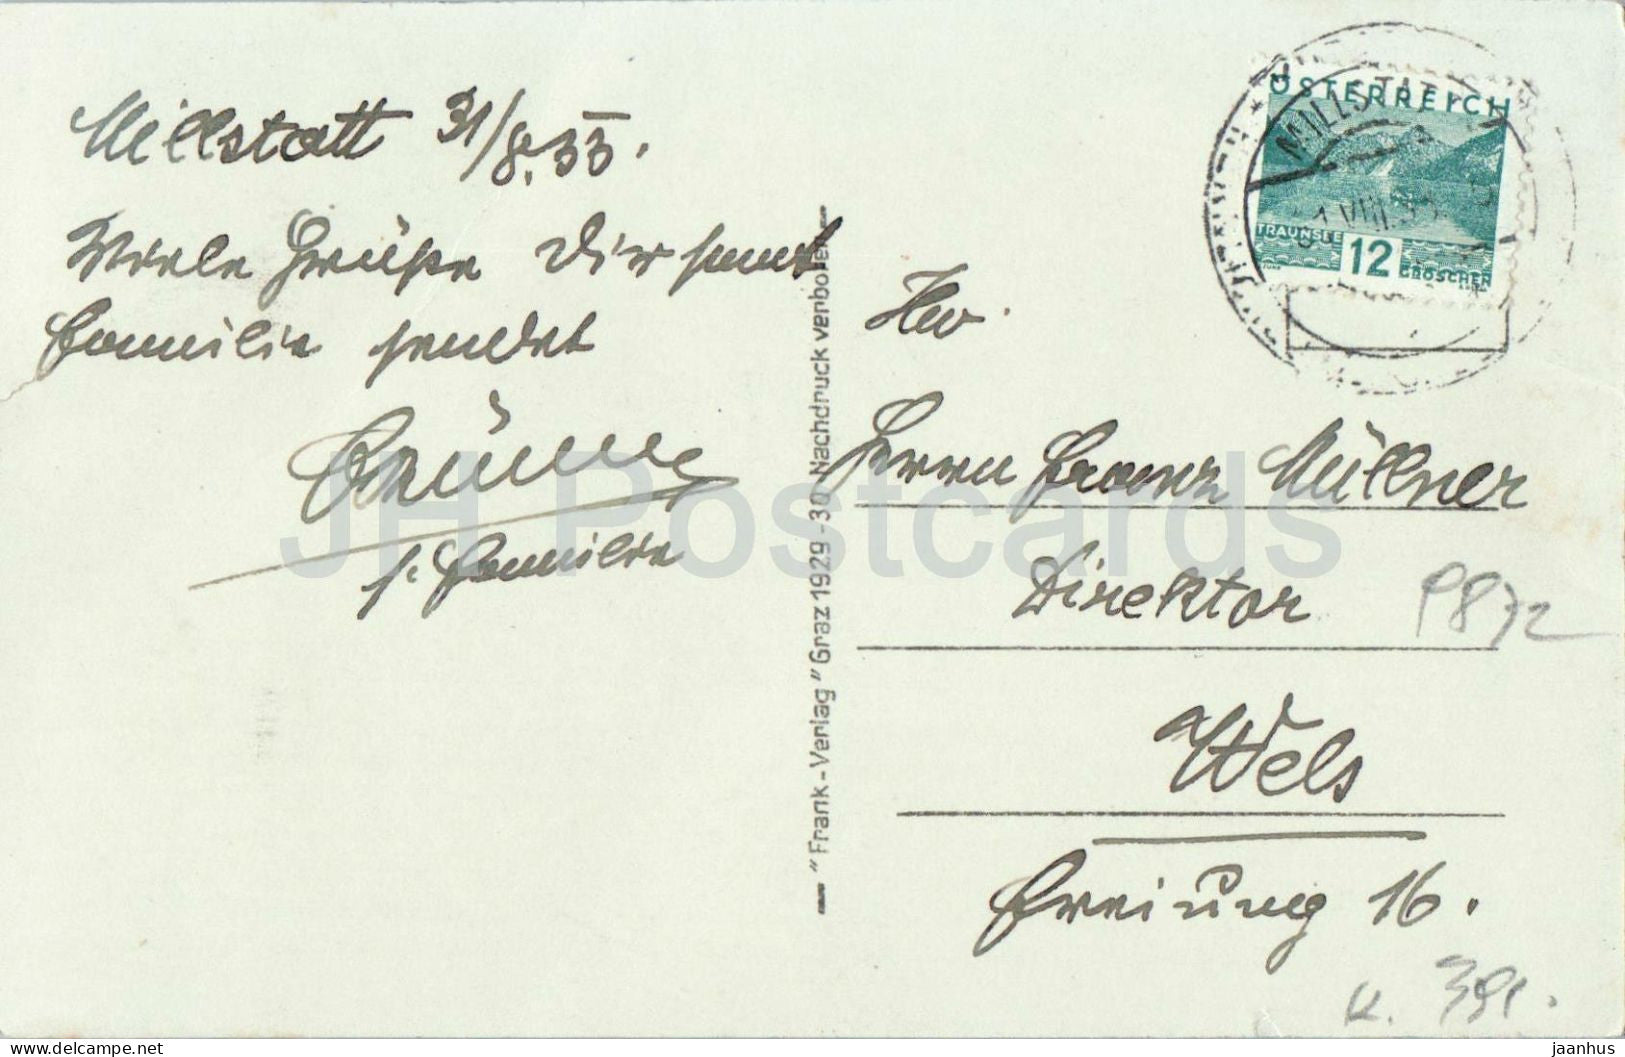 Millstatt 31/8.33.
Viele Grüße Dir samt
Familie sendet
s. Familie
"Frank-Verlag" Graz 1929-30 Nachdruck verboten
ÖSTERREICH
MILLSTATT
VIII.33
TRAUNSEE
12
GROSCHEN
Herrn Franz Müllner
Direktor
P872
Wels
Freiung 16.
K. 391.
JH Postcards
delcampe.net
jaanhus